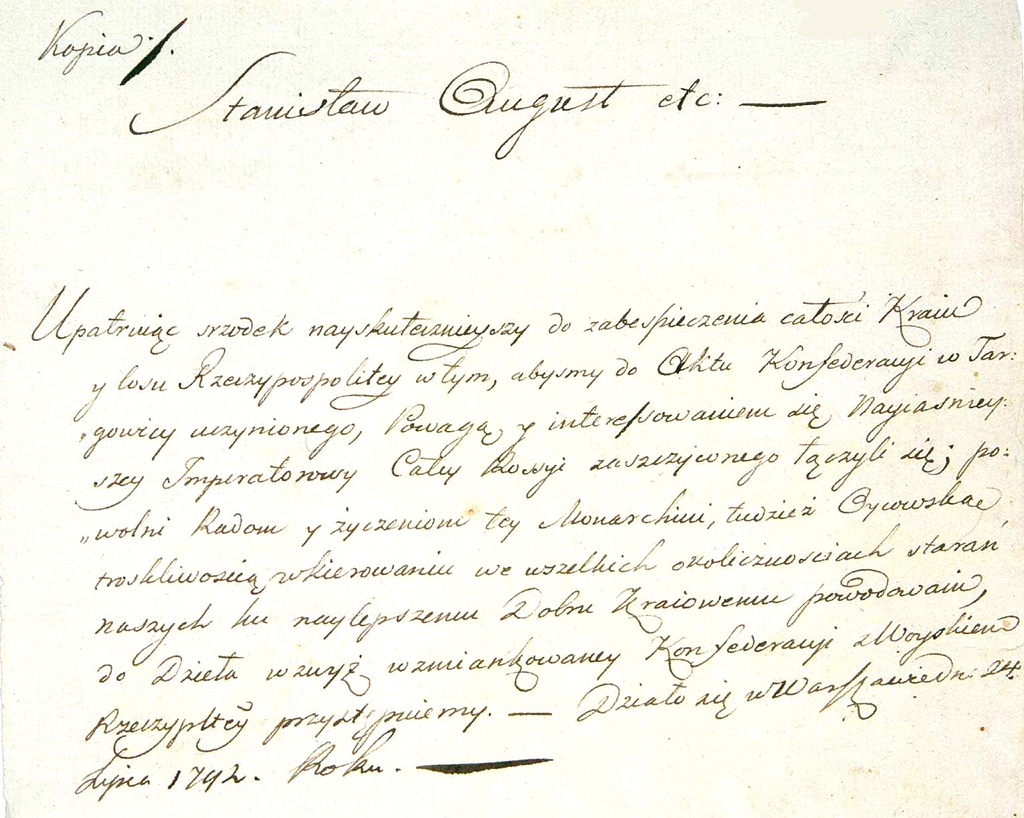 Kopia /.
Stanisław August etc: —
Upatruiąc srzodek nayskutecznieyszy do zabespieczenia całości Kraiu
y losu Rzeczypospolitey w tym, abysmy do Aktu Konfederacyi w Tar:
„gowicy uczynionego, Powagą y interessowaniem się Nayiaśniey:
szey Imperatorowy Całey Rossyi zaszczyconego łączyli się; po:
„wolni Radom y życzeniom tey Monarchini, tudzież Oycowską
troskliwoscią w kierowaniu we wszelkich okolicznościach starań
naszych ku naylepszemu Dobru Kraiowemu powodowani,
do Dzieła wzwyż wzmiankowaney Konfederacyi z Woyskiem
Rzeczypltey przystępuiemy. — Działo się w Warszawie dn: 24.
Lipca 1792. Roku. —